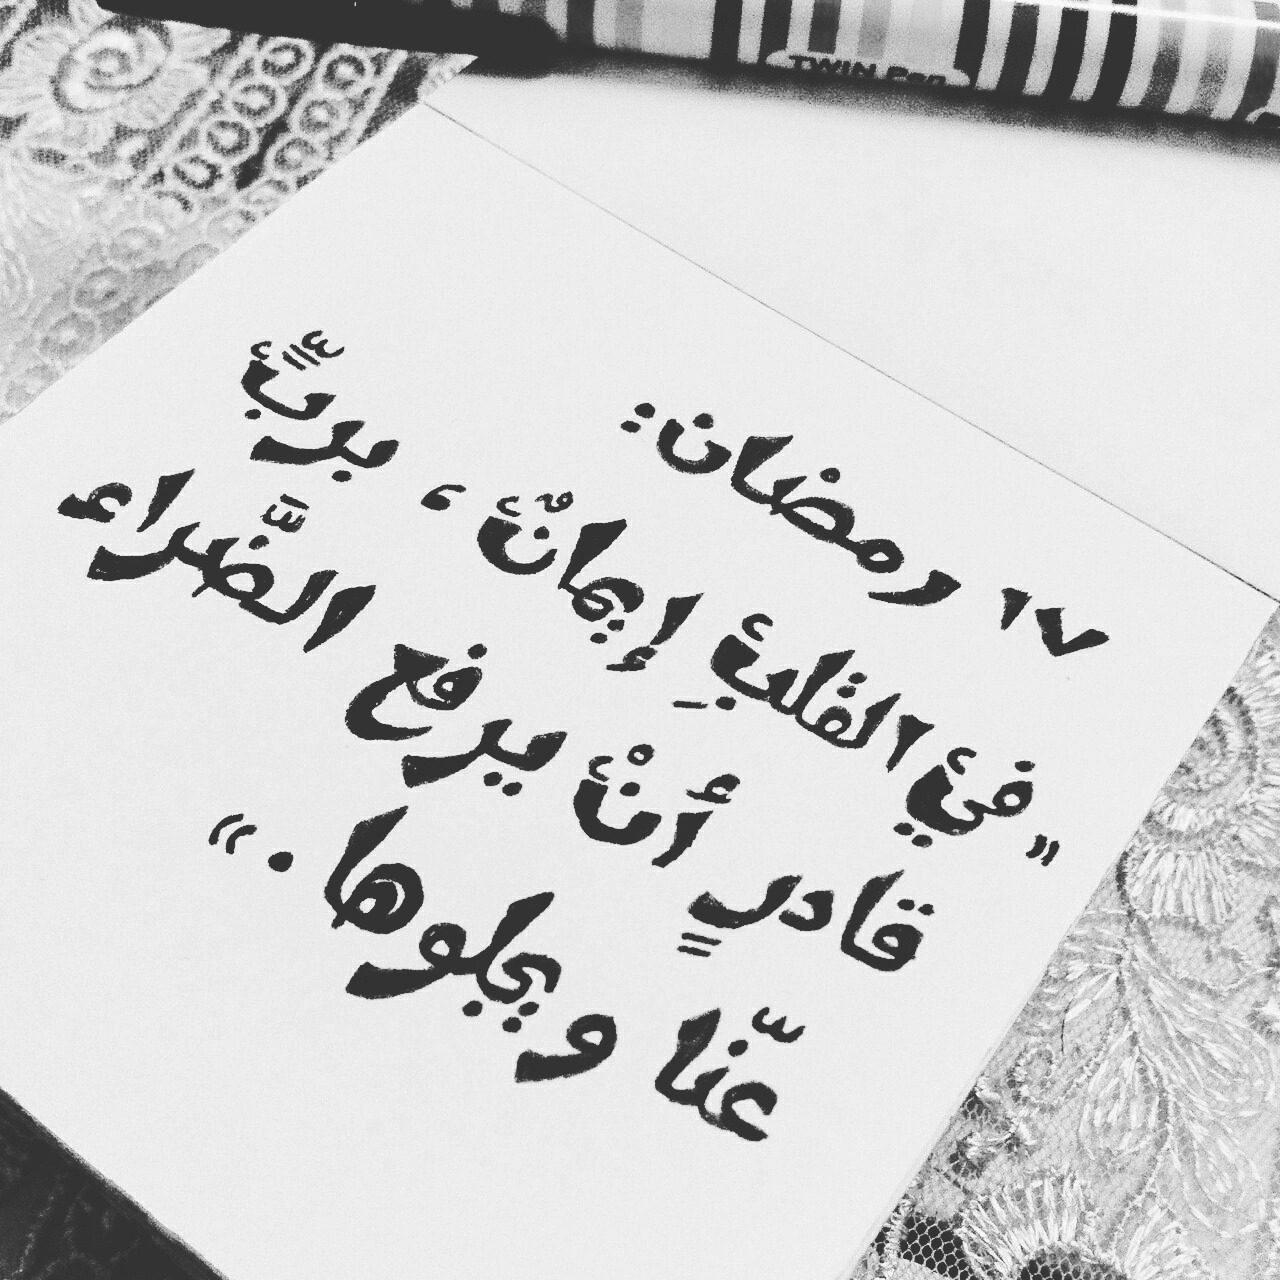 TWIN Pen
١٧ رمضان:
"في القلبِ إيمانٌ ، بربٍّ
قادرٍ أنْ يرفع الضَّراء
عنّا ويجلوها ."